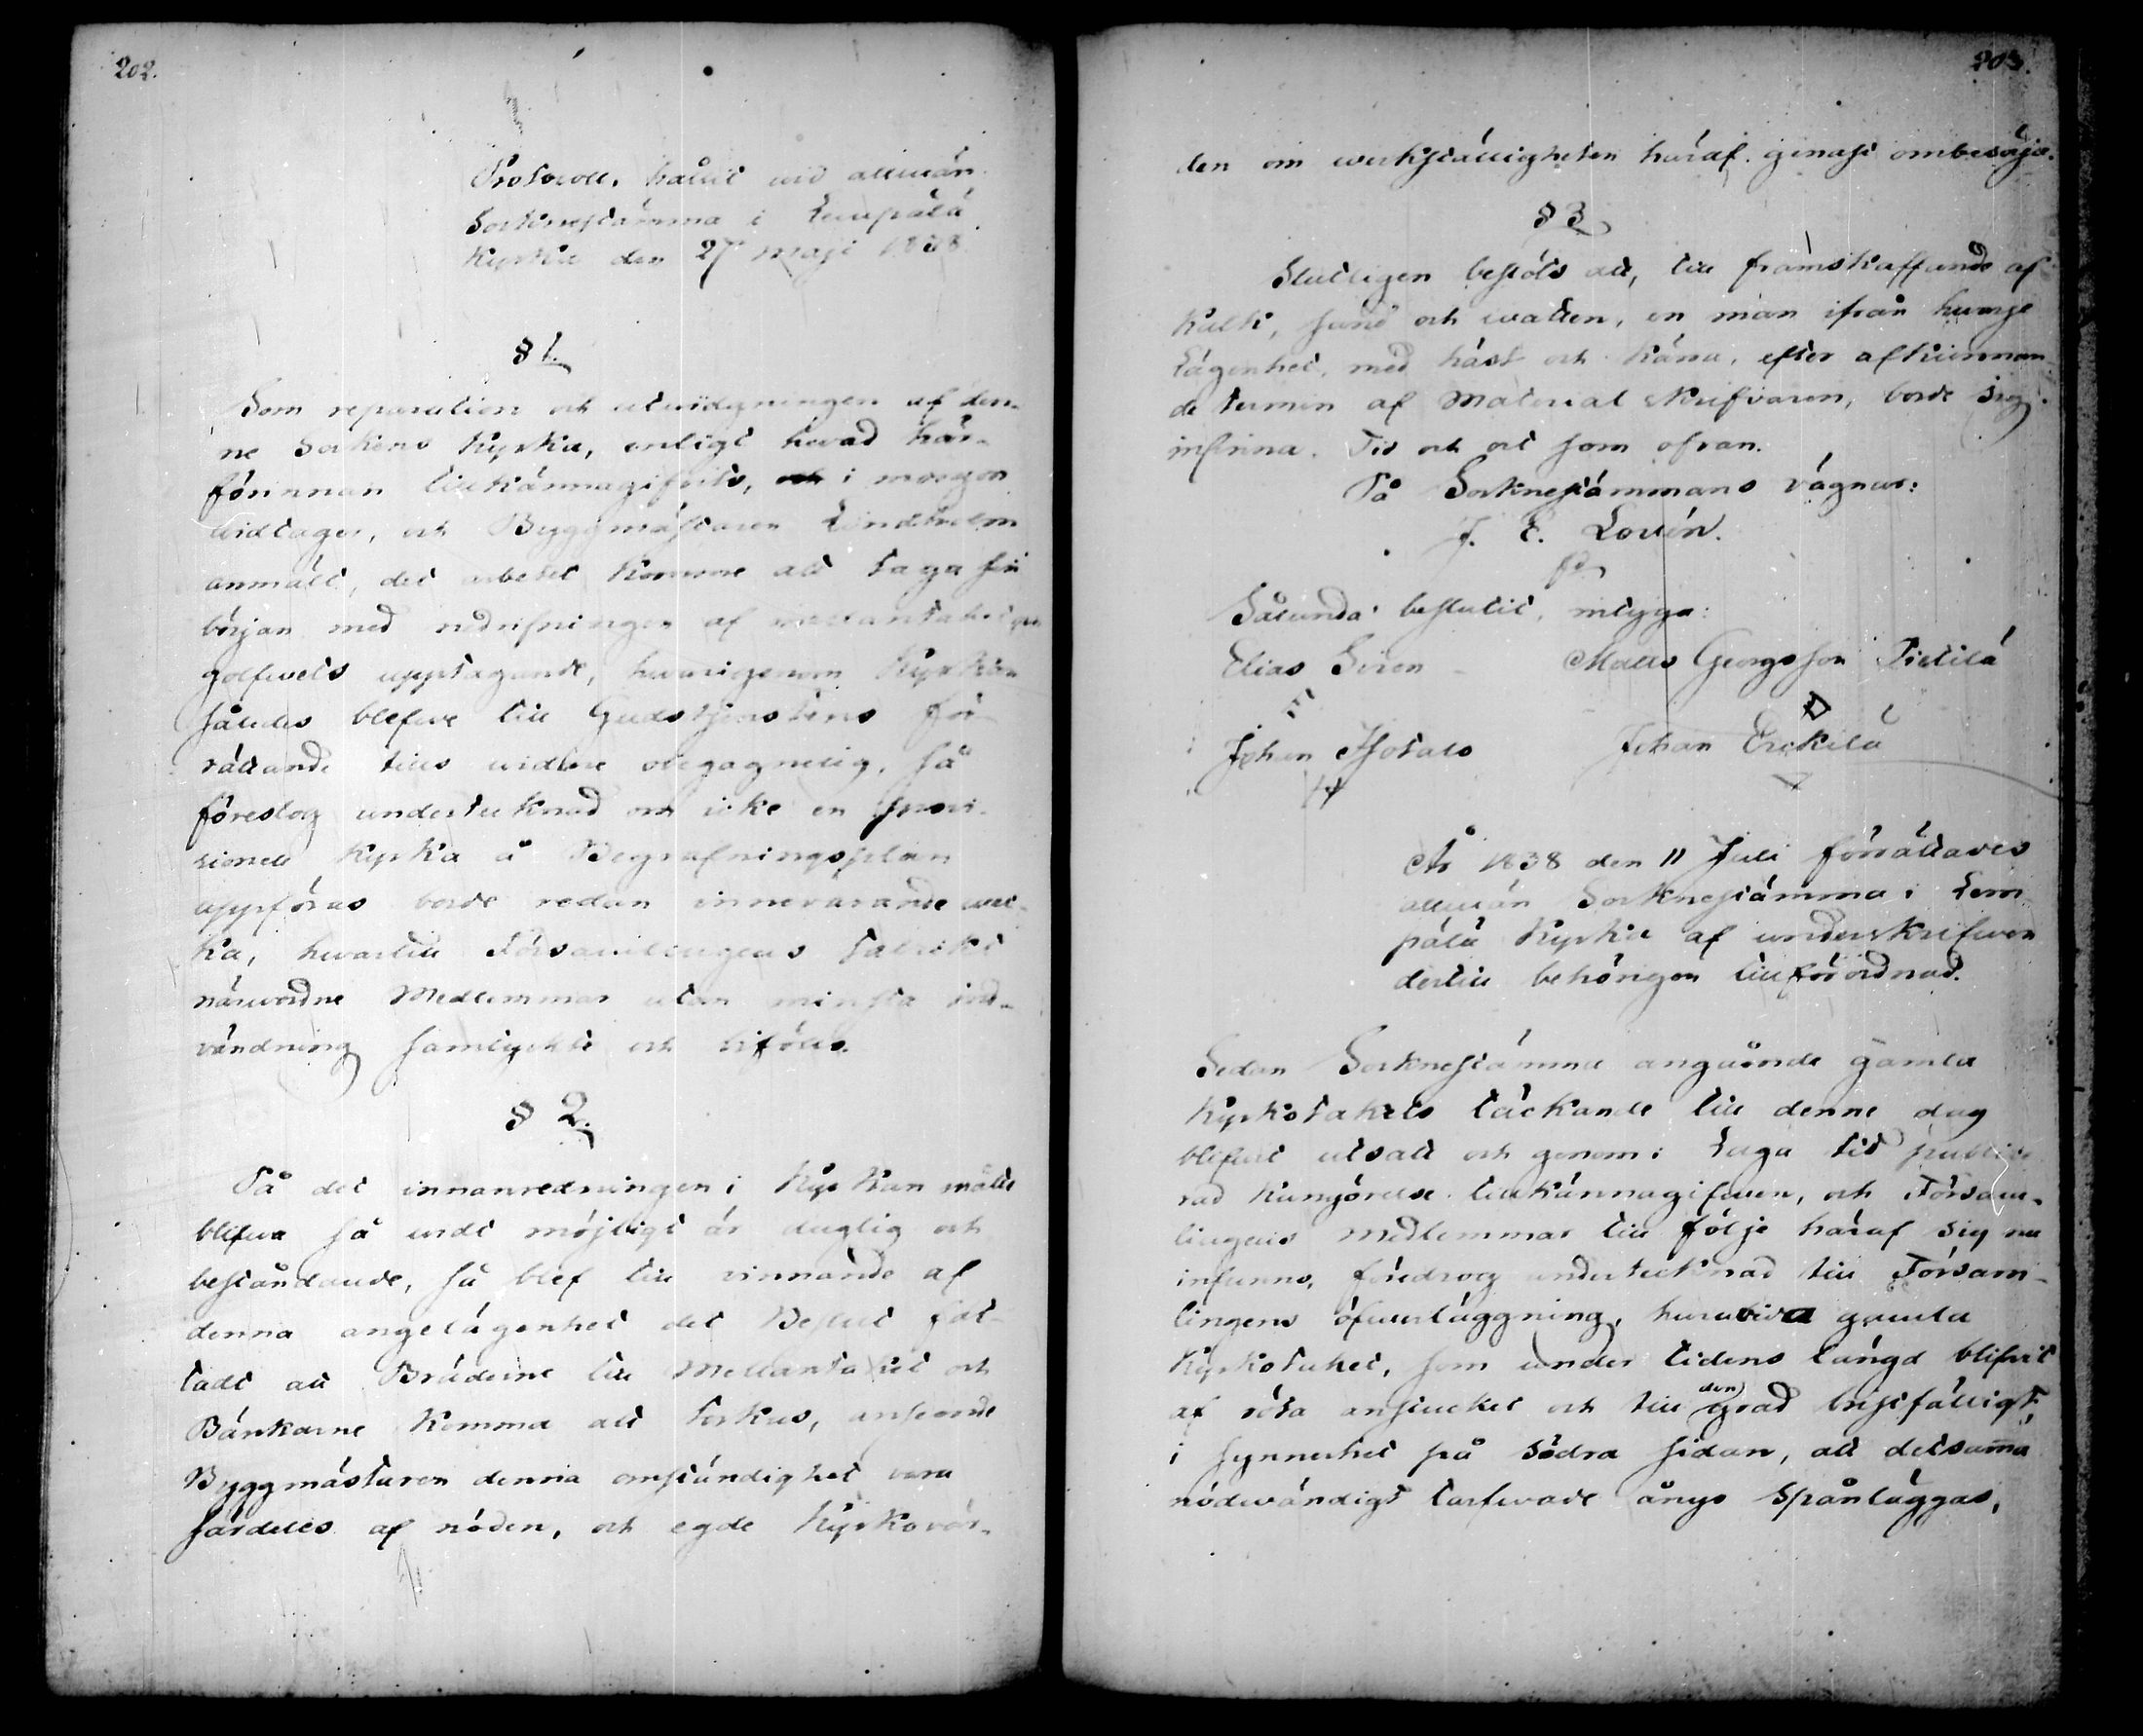 202.
Protocoll, hållit vid allmän
Socknestämma i Lempälä
Kyrka den 27 Maji 1838.
§ 1.
Som reparation och utvidgningen af den-
ne Sockens Kyrka, enligt hvad här-
förinnan tillkännagifvits, i morgon
vidtager, och Byggmästaren Lindholm
anmält, det arbetet komme att taga sin
början med nedrifningen af mellantaket
golfvets upptagande, hvarigenom Kyrkan
således blefve till Gudstjenstens för-
rättande tills vidare obegagnelig, så
föreslog undertecknad om icke en provi-
sionell Kyrka å Begrafningsplan
uppföras borde redan innevarande vec-
ka, hvartill Församlingens talrikt
närvordne Medlemmar utan minsta in-
vändning samtyckte och biföllo.
§ 2.
På det innanredningen i Kyrkan måtte
blifva så vidt möjligt är duglig och
beståndande, så blef till vinnande af
denna angelägenhet det Beslut fat-
tadt att Bräderne till Mellantaket och
Bänkarne komma att torkas, anseende
Byggmästaren denna omständighet vara
särdeles af nöden, och egde Kyrkovär-
203.
den om verkställigheten häraf genast ombesörja.
§ 3
Slutligen beslöts att, till framskaffande af
Kalk, sand och vatten, en man ifrån hvarje
Lägenhet, med häst och kärra, efter afkunnan-
de termin af Material skrifvaren, borde sig
infinna. Tid och ort som ofvan.
På Socknestämmans vägnar:
J. E. Lovén.
Sålunda beslutit, intyga:
Elias Siren Matts Georgsson Pietilä
Johan Isotalo Johan Erckilä
År 1838 den 11 Juli förrättades
allmän Socknestämma i Lem-
pälä Kyrka af underskrifven
dertill behörigen tillförordnad.
Sedan Socknestämma angående gamla
Kyrkotakets täckande till denne dag
blifvit utsatt och genom i Laga tid publice-
rad kungörelse tillkännagifven, och Försam-
lingens medlemmar till följe häraf sig nu
infunno, föredrog undertecknad till Försam-
lingens öfverläggning, huruvida gamla
Kyrkotaket, som under tidens längd blifvit
af röta anstucket och till den grad bristfälligt,
i synnerhet på Södra sidan, att detsamma
nödvändigt tarfvade ånyo spånläggas,